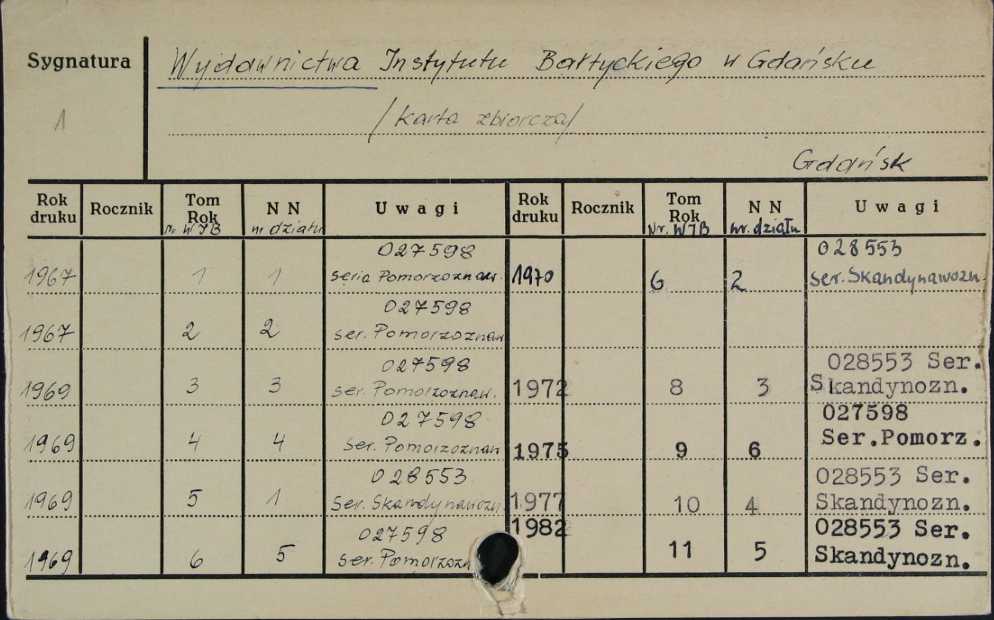 Sygnatura
Wydawnictwa Instytutu Bałtyckiego w Gdańsku
1
/karta zbiorcza/
Gdańsk
Rok druku Rocznik Tom Rok NN Uwagi Rok druku Rocznik Tom Rok NN Uwagi
nr WIB nr działu Nr. WIB nr. działu
1967 1 1 027598
seria Pomorzoznaw.
1967 2 2 027598
ser. Pomorzoznaw
1969 3 3 027598
ser. Pomorzoznaw.
1969 4 4 027598
ser. Pomorzoznaw
1969 5 1 028553
ser. Skandynawozn.
1969 6 5 027598
ser. Pomorzozn
1970 6 2 028553
ser. Skandynawozn.
1972 8 3 028553 Ser.
Skandynozn.
1975 9 6 027598
Ser.Pomorz.
1977 10 4 028553 Ser.
Skandynozn.
1982 11 5 028553 Ser.
Skandynozn.